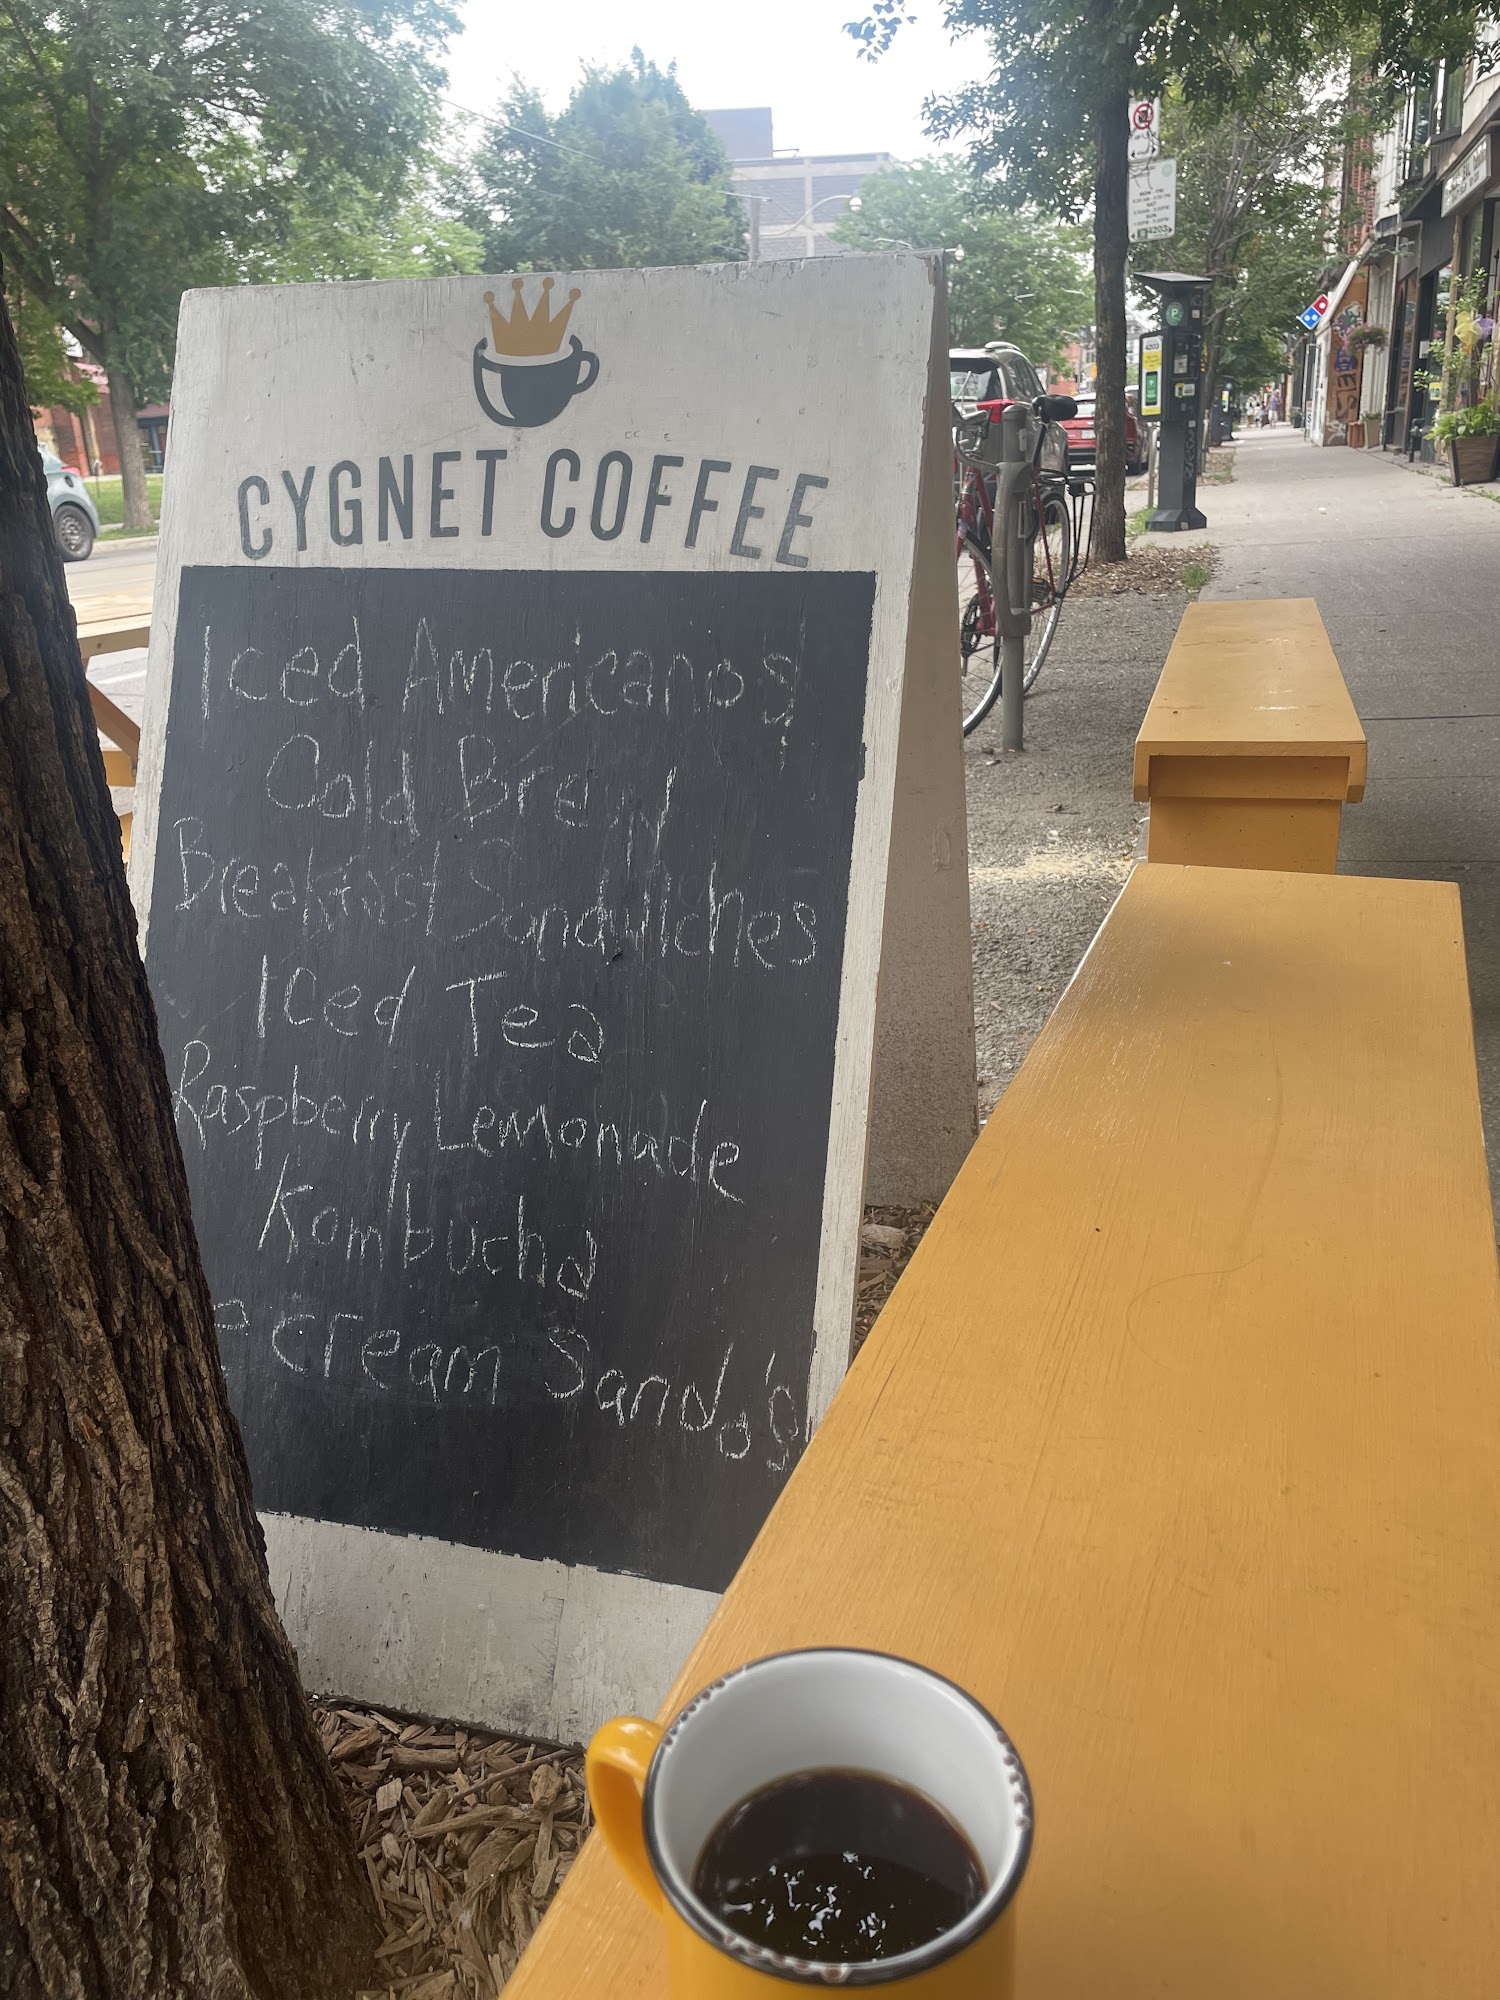 CYGNET COFFEE
Iced Americanos
Cold Brew
Breakfast Sandwiches
Iced Tea
Raspberry Lemonade
Kombucha
e cream Sando's
MON-FRI
SAT
SUN
4203
4203
P